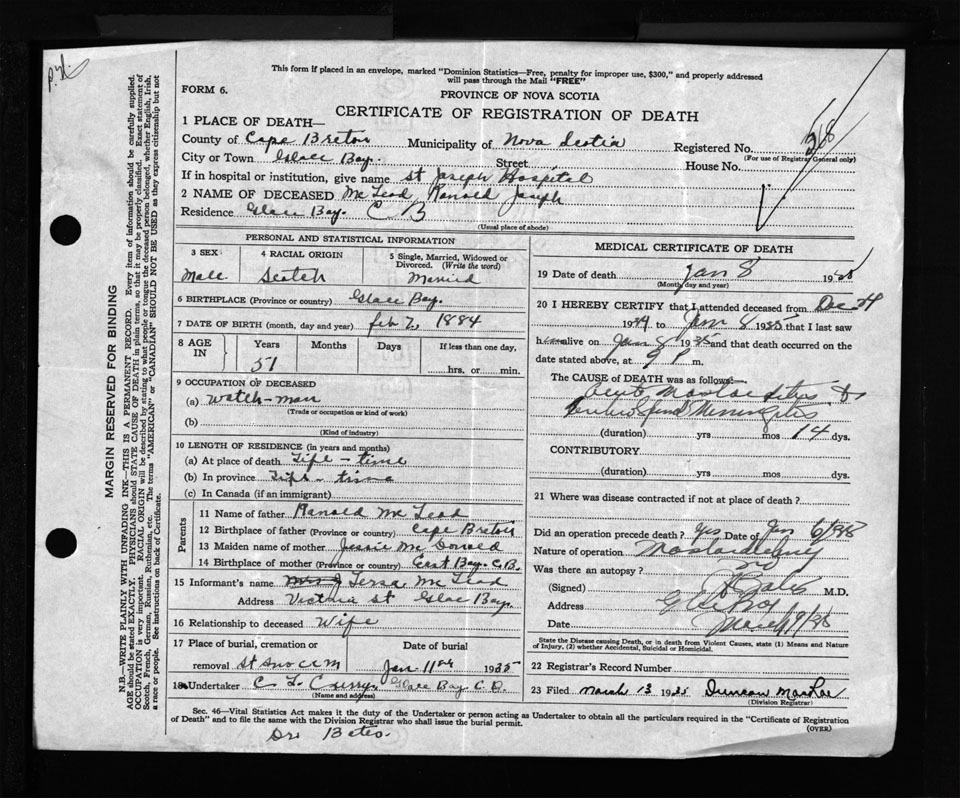 This form if placed in an envelope, marked "Dominion Statistics—Free, penalty for improper use, $300," and properly addressed
will pass through the Mail "FREE"
FORM 6.
PROVINCE OF NOVA SCOTIA
CERTIFICATE OF REGISTRATION OF DEATH
1 PLACE OF DEATH—
County of Cape Breton Municipality of Nova Scotia Registered No.
(For use of Registrar General only)
City or Town Glace Bay. Street House No.
If in hospital or institution, give name St Joseph Hospital
2 NAME OF DECEASED McLeod Ranold Joseph
Residence Glace Bay. C B
(Usual place of abode)
PERSONAL AND STATISTICAL INFORMATION
3 SEX 4 RACIAL ORIGIN 5 Single, Married, Widowed or
Divorced. (Write the word)
Male Scotch Married
6 BIRTHPLACE (Province or country) Glace Bay.
7 DATE OF BIRTH (month, day and year) feb 2, 1884
8 AGE IN Years Months Days If less than one day,
51 hrs. or min.
9 OCCUPATION OF DECEASED
(a) watch-man
(Trade or occupation or kind of work)
(b)
(Kind of industry)
10 LENGTH OF RESIDENCE (in years and months)
(a) At place of death Life - time
(b) In province Life - time
(c) In Canada (if an immigrant)
Parents
11 Name of father Ranold McLeod
12 Birthplace of father (Province or country) Cape Breton
13 Maiden name of mother Jessie McDonald
14 Birthplace of mother (Province or country) East Bay. C.B.
15 Informant's name Teresa McLeod
Address Victoria St Glace Bay.
16 Relationship to deceased Wife
17 Place of burial, cremation or Date of burial
removal St Anns C M Jan 11 1935
18 Undertaker C L Curry. Glace Bay C.B.
(Name and address)
MEDICAL CERTIFICATE OF DEATH
19 Date of death Jan 8 1935
(Month, day and year)
20 I HEREBY CERTIFY that I attended deceased from Dec 24
1934 to Jan 8 1935 that I last saw
him alive on Jan 8 1935 and that death occurred on the
date stated above, at 9 P m.
The CAUSE OF DEATH was as follows:—
Acute Mastoiditis &
Meningitis
(duration) yrs mos 14 dys.
CONTRIBUTORY
(duration) yrs mos dys.
21 Where was disease contracted if not at place of death?
Did an operation precede death? yes Date of Jan 6/35
Nature of operation
Was there an autopsy? no
(Signed) M.D.
Address Glace Bay
Date March 9/35
State the Disease causing Death, or in death from Violent Causes, state (1) Means and Nature
of Injury, (2) whether Accidental, Suicidal or Homicidal.
22 Registrar's Record Number
23 Filed March 13 1935 Duncan MacRae
(Division Registrar)
Sec. 46—Vital Statistics Act makes it the duty of the Undertaker or person acting as Undertaker to obtain all the particulars required in the "Certificate of Registration
of Death" and to file the same with the Division Registrar who shall issue the burial permit.
(OVER)
Dr. Bates.
MARGIN RESERVED FOR BINDING
N.B.—WRITE PLAINLY WITH UNFADING INK—THIS IS A PERMANENT RECORD. Every item of information should be carefully supplied.
AGE should be stated EXACTLY. PHYSICIANS should STATE CAUSE OF DEATH in plain terms, so that it may be properly classified. Exact statement of
OCCUPATION is very important. RACIAL ORIGIN will be described by stating to what people or tongue the deceased person belonged, whether English, Irish,
Scotch, French, German, Russian, Ruthenian, etc. The terms "AMERICAN" or "CANADIAN" SHOULD NOT BE USED as they express citizenship but not
a race or people. See instructions on back of Certificate.